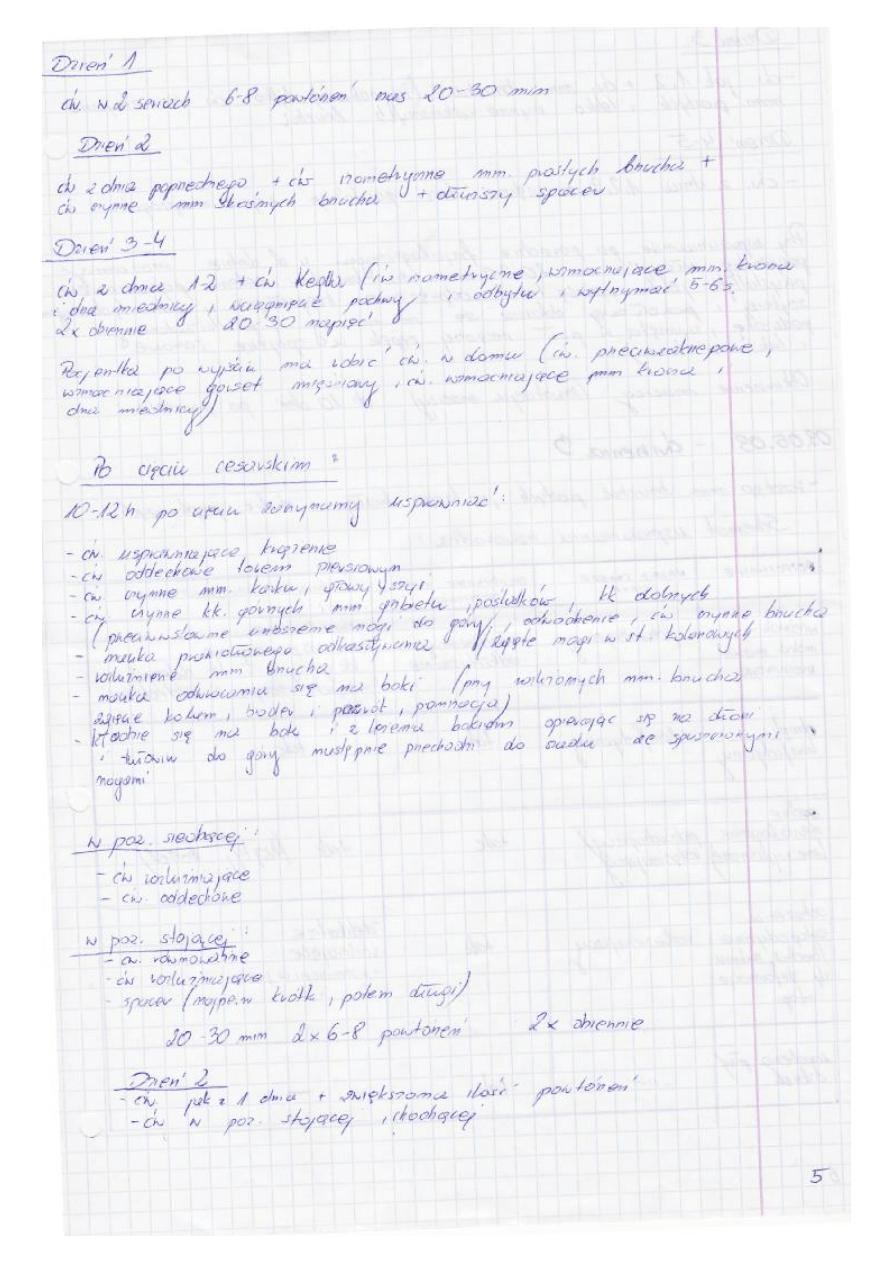 Dzień 1
ćw. w 2 seriach 6-8 powtórzeń nas 20-30 min
Dzień 2
ćw z dnia poprzedniego + ćw izometryczne mm. prostych brzucha +
ćw czynne mm skośnych brzucha + dłuższy spacer
Dzień 3-4
ćw z dnia 1-2 + ćw Kegla (ćw izometryczne, wzmacniające mm. krocza
i dna miednicy, wciągnięcie pochwy i odbytu i wytrzymać 5-6s.
2x dziennie 20-30 napięć
Pacjentka po wyjściu ma robić ćw. w domu (ćw. przeciwzakrzepowe,
wzmacniające gorset mięśniowy, ćw. wzmacniające mm krocza i
dna miednicy)
Po cięciu cesarskim:
10-12 h po cięciu zaczynamy usprawniać:
- ćw. usprawniające krążenie
- ćw oddechowe torem piersiowym
- ćw czynne mm. karku, głowy i szyi
- ćw czynne kk. górnych i mm grzbietu, pośladków, kk dolnych
(przeciwwskazane unoszenie nogi do góry, odwodzenie, ćw czynne brzucha
- nauka prawidłowego odkasływania /zgięte nogi w st. kolanowych
- rozluźnienie mm brzucha
- nauka odwracania się na boki (przy rozluźnionych mm. brzucha
zgięcie kolan, bioder i powrót, pronacja)
- kładzie się na bok i z leżenia bokiem opierając się na dłoni
i tułowiu do góry następnie przechodzi do siadu ze spuszczonymi
nogami
w poz. siedzącej:
- ćw rozluźniające
- ćw. oddechowe
w poz. stojącej:
- ćw. równoważne
- ćw rozluźniające
- spacer (najpierw krótki, potem długi)
20-30 min 2x6-8 powtórzeń 2x dziennie
Dzień 2
- ćw. jak z 1 dnia + zwiększona ilość powtórzeń
- ćw w poz. stojącej i chodzącej
5